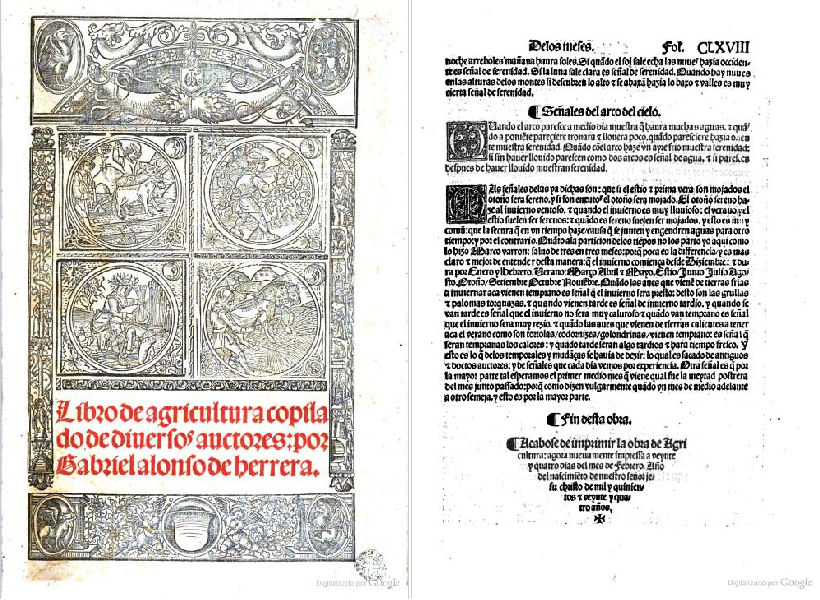 Libro de agricultura copila
do de diuersos auctores: por
Gabriel alonso de herrera.
Digitalizado por Google
De los meses. Fol. CLXVIII
noche arreboles mañana haura soles. Si quãdo el sol sale echa las nuues hazia occiden
tes señal de serenidad. Si la luna sale clara es señal de serenidad. Quando hay nuues
en las alturas delos montes si descubren lo alto e se abaxã hazia lo baxo e valles es muy
cierta señal de serenidad.
Señales del arco del cielo.
Quando el arco paresce a medio dia muestra q̃ haura muchas aguas. e quã
do a poniẽte paresciere tronara e llouera poco. quãdo paresciere hazia
te muestra serenidad. Quãdo cõ el arco haze vn ayre muestra serenidad:
si sin hauer llouido parescen como dos arcos es señal de agua. e si parescen
despues de hauer llouido muestran serenidad.
Las señales delas ya dichas son: que si el estio e prima vera son mojados el
otoño sera sereno. y si son enxutos el otoño sera mojado. El otoño sereno ha
ze al inuierno ventoso. e quando el inuierno es muy lluuioso: el verano y el
estio suelen ser serenos: e quãdo es sereno suelen ser mojados. y esto es muy
comũ: que la secura q̃ en vn tiempo haze causa q̃ se junten y engendren aguas para otro
tiempo: y por el contrario. Quãto ala particion delos tiẽpos no los parto yo aqui como
lo hizo Marco varron: saluo de tres en tres meses: porq̃ poca es la differencia: y es mas
claro e mejor de entender desta manera: q̃ el inuierno comiença desde Diziembre: e du
ra por Enero y Hebrero. Verano Março Abril e Mayo. Estio/ Junio Julio Ago
sto. Otoño/ Setiembre Octubre Nouiẽbre. Quãdo las aues que vienẽ de tierras frias
a inuernar aca vienen temprano es señal q̃ el inuierno sera presto: desto son las grullas
e palomas torquazas. e quando vienen tarde es señal de inuierno tardio. y quando se
van tarde es señal que el inuierno no sera muy caluroso e quãdo van temprano es señal
que el inuierno sera muy rezio. e quãdo las aues que vienen de tierras calurosas a tener
aca el verano como son tortolas/ codornizes/ golondrinas/ vienen temprano: es señal q̃
seran tempranos los calores: y quãdo tarde seran algo tardios e hara tiempo fresco. Y
esto es lo q̃ delos temporales y mudãças se hauia de dezir: lo qual es sacado de antiguos
e doctos auctores: y de señales que cada dia vemos por experiencia. Otra señal es q̃ por
la mayor parte tal esperamos el primer medio mes q̃ viene qual fue la meytad postrera
del mes junto passado: porq̃ como dizen vulgarmente quãdo vn mes de medio adelante
a otro semeja. y esto es por la mayor parte.
Fin desta obra.
Acabose de imprimir la obra de Agri
cultura: agora nueua mente impressa a veynte
y quatro dias del mes de Febrero. Año
del nascimiẽto de nuestro señor je
su christo de mil y quinien
tos e veynte y qua
tro años.
Digitalizado por Google